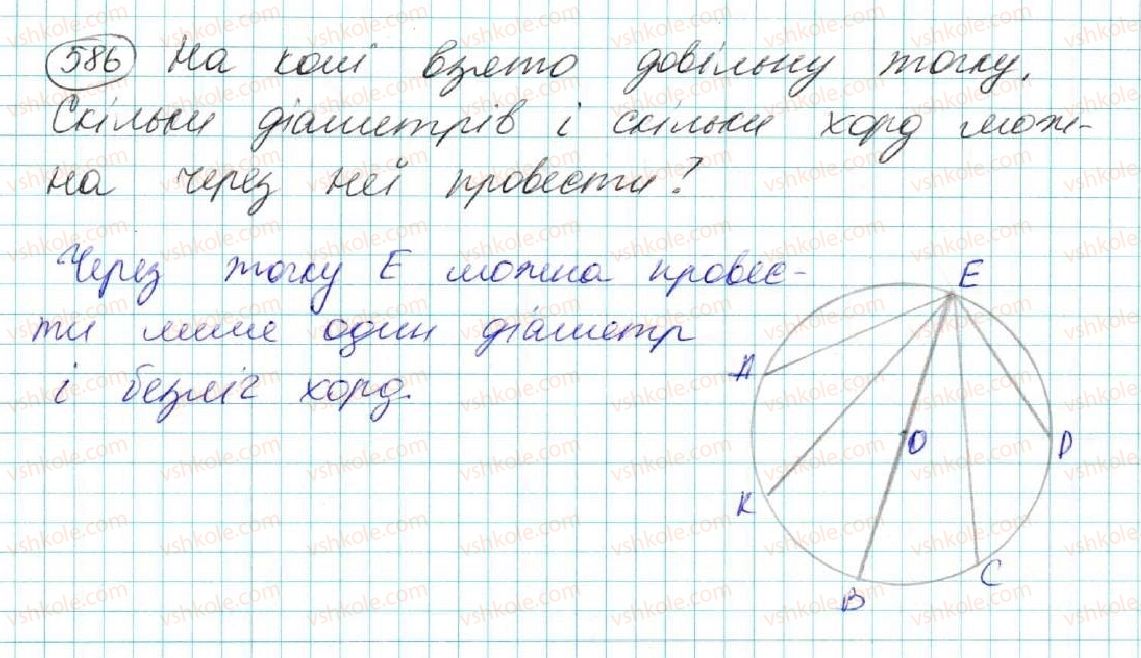 586 На колі взято довільну точку.
Скільки діаметрів і скільки хорд мож-
на через неї провести?
Через точку E можна провес-
ти лише один діаметр
і безліч хорд.
E
A
O
D
K
C
B
vshkole.com